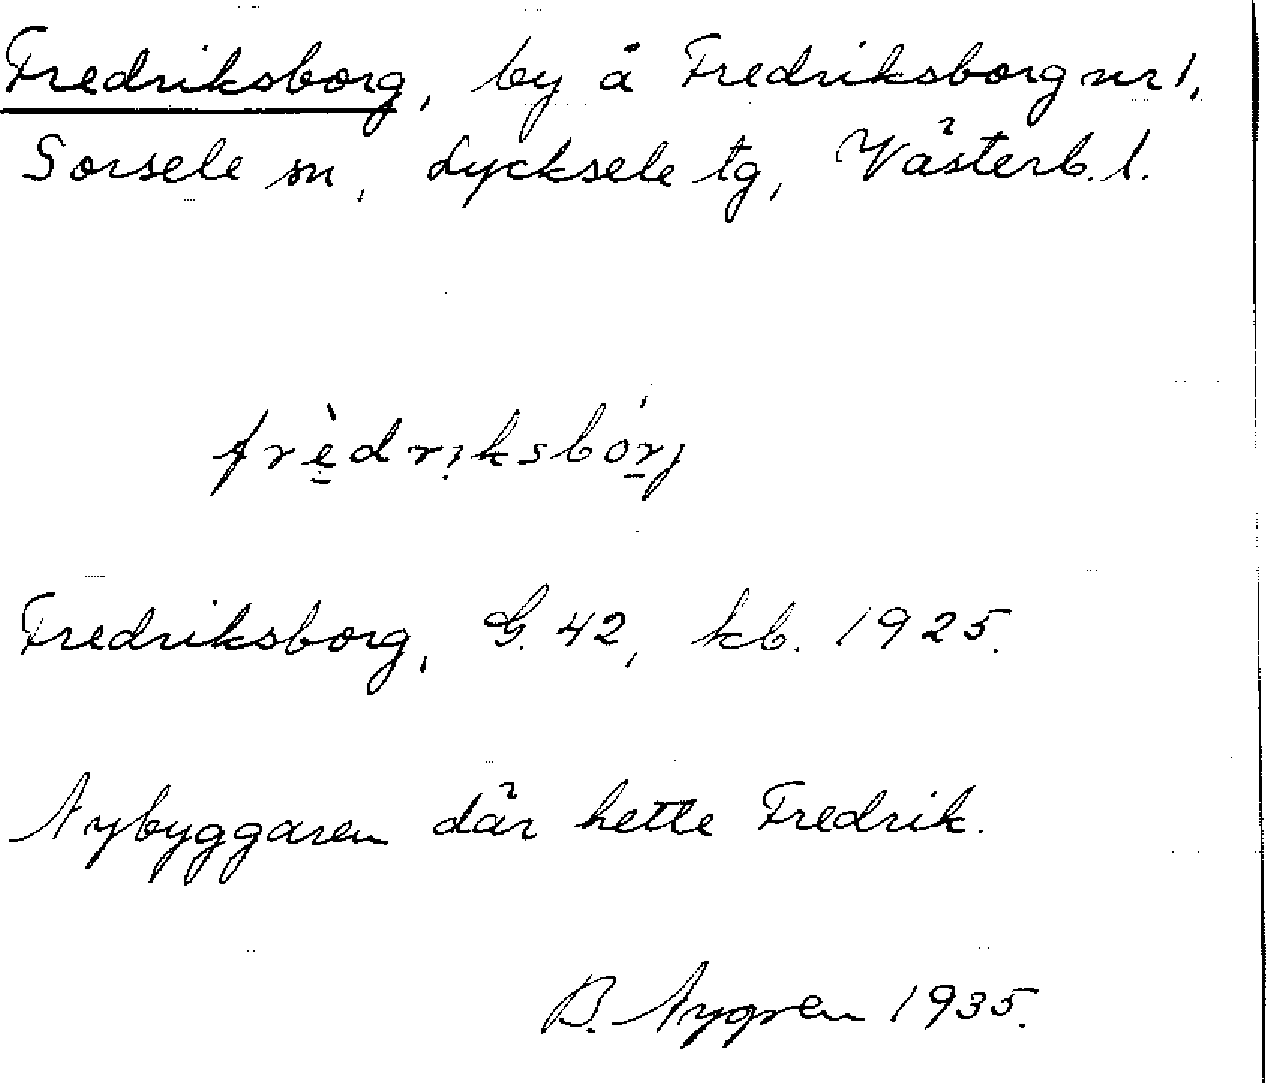 Fredriksborg, by å Fredriksborg nr 1,
Sorsele sn, Lycksele tg, Västerb. l.
frèdriksbórj
Fredriksborg, G. 42, kb. 1925.
Nybyggaren där hette Fredrik.
B. Nygren 1935.